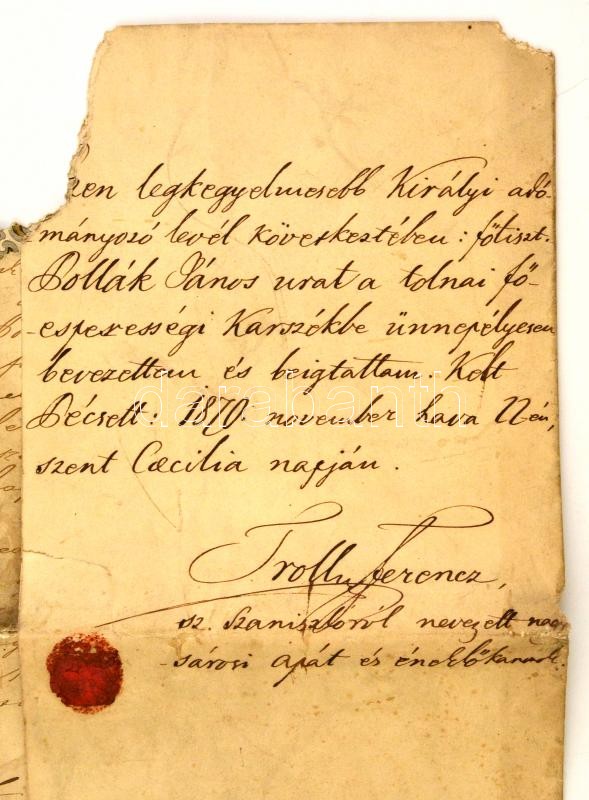 zen legkegyelmesebb Királyi adó-
mányozó levél következtében: főtiszt.
Pollák János urat a tolnai fő-
esperességi Karszékbe ünnepélyesen
bevezettem és beigtattam. Kelt
Pécsett: 1870. november hava 22-én,
szent Cæcilia napján.
Trolly Ferencz,
sz. Szaniszlóról nevezett nagy
sárosi apát és éneklőkanonok.
darabanth